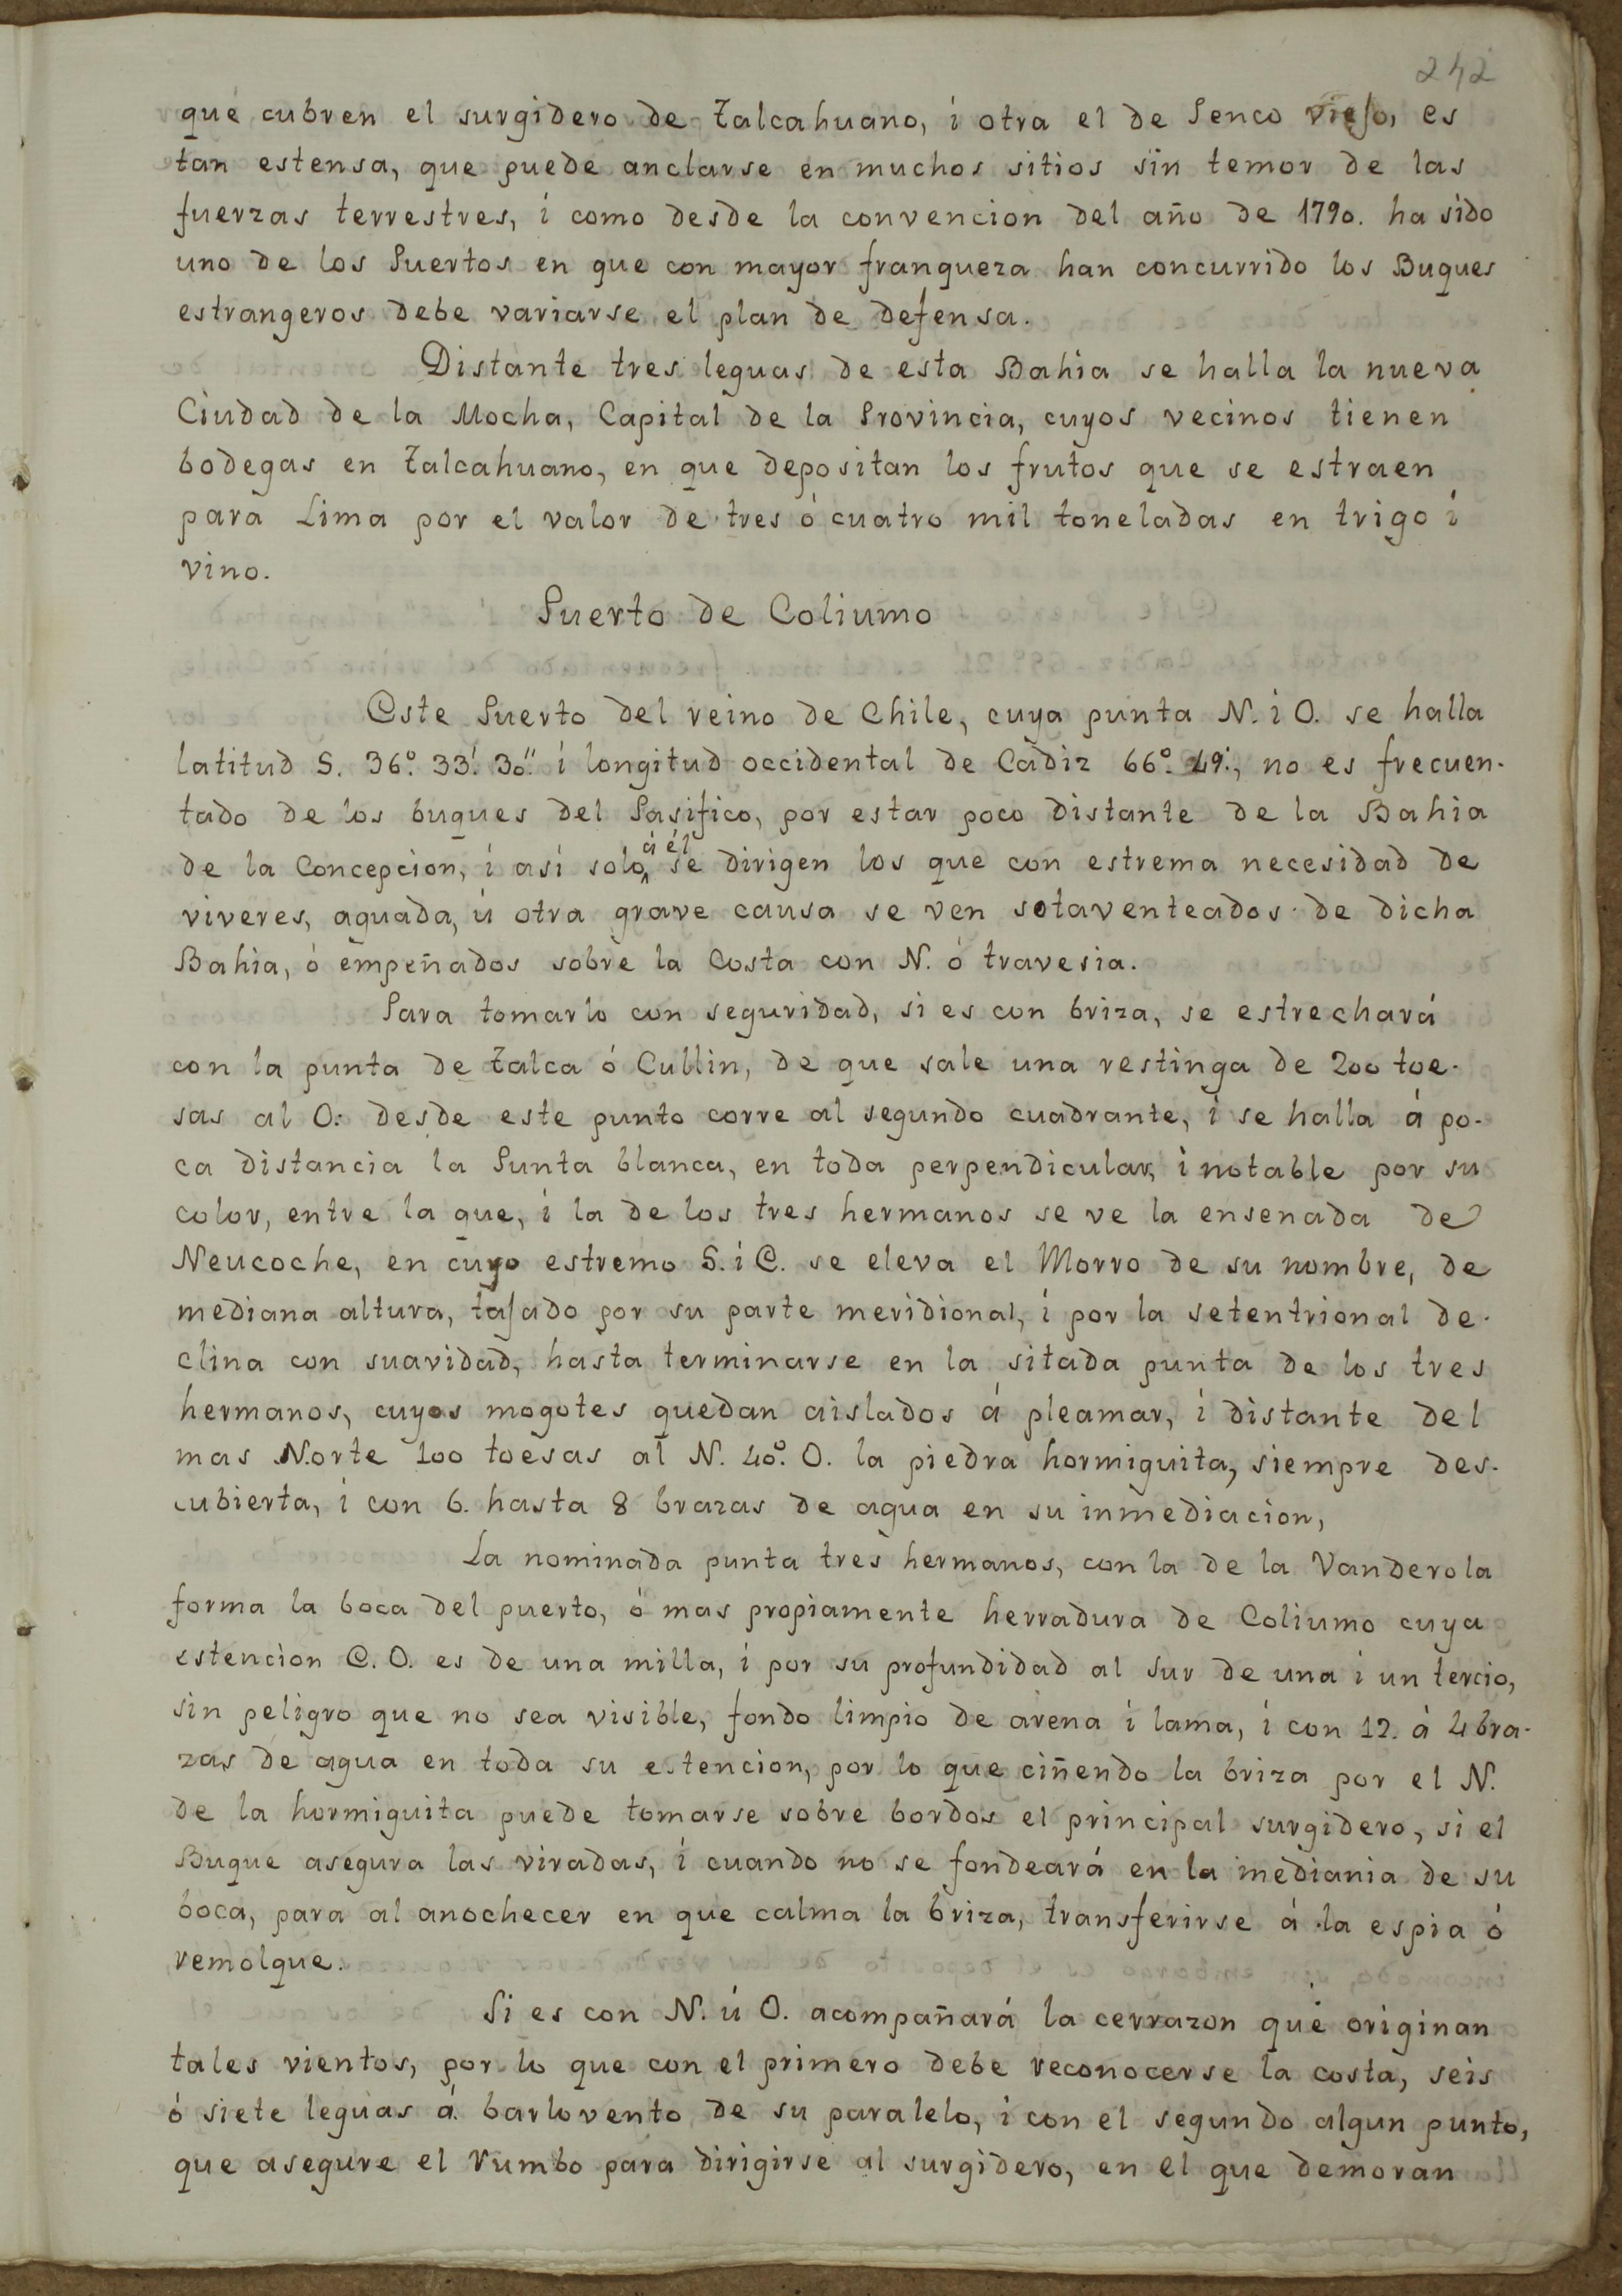 242
que cubren el surgidero de Talcahuano, i otra el de Penco viejo, es
tan estensa, que puede anclarse en muchos sitios sin temor de las
fuerzas terrestres, i como desde la convencion del año de 1790. ha sido
uno de los Puertos en que con mayor franqueza han concurrido los Buques
estrangeros debe variarse el plan de defensa.
Distante tres leguas de esta Bahia se halla la nueva
Ciudad de la Mocha, Capital de la Provincia, cuyos vecinos tienen
bodegas en Talcahuano, en que depositan los frutos que se estraen
para Lima por el valor de tres ó cuatro mil toneladas en trigo i
vino.
Puerto de Coliumo
Este Puerto del reino de Chile, cuya punta N. i O. se halla
latitud S. 36.° 33.' 30." i longitud occidental de Cadiz 66.° 49.', no es frecuen-
tado de los buques del Pasifico, por estar poco distante de la Bahia
de la Concepcion, i así solo á él se dirigen los que con estrema necesidad de
viveres, aguada, ú otra grave causa se ven sotaventeados de dicha
Bahia, ó empeñados sobre la Costa con N. ó travesia.
Para tomarlo con seguridad, si es con briza, se estrechará
con la punta de Talca ó Cullin, de que sale una restinga de 200 toe-
sas al O: desde este punto corre al segundo cuadrante, i se halla á po-
ca distancia la Punta blanca, en toda perpendicular, i notable por su
color, entre la que, i la de los tres hermanos se ve la ensenada de
Neucoche, en cuyo estremo S. i E. se eleva el Morro de su nombre, de
mediana altura, tajado por su parte meridional, i por la setentrional de-
clina con suavidad, hasta terminarse en la sitada punta de los tres
hermanos, cuyos mogotes quedan aislados á pleamar, i distante del
mas Norte 100 toesas al N. 40.° O. la piedra hormiguita, siempre des-
cubierta, i con 6. hasta 8 brazas de agua en su inmediacion,
La nominada punta tres hermanos, con la de la Vanderola
forma la boca del puerto, ó mas propiamente herradura de Coliumo cuya
estencion E. O. es de una milla, i por su profundidad al Sur de una i un tercio,
sin peligro que no sea visible, fondo limpio de arena i lama, i con 12. á 4 bra-
zas de agua en toda su estencion, por lo que ciñendo la briza por el N.
de la hormiguita puede tomarse sobre bordos el principal surgidero, si el
Buque asegura las viradas, i cuando no se fondeará en la mediania de su
boca, para al anochecer en que calma la briza, transferirse á la espia ó
remolque.
Si es con N. ú O. acompañará la cerrazon que originan
tales vientos, por lo que con el primero debe reconocerse la costa, seis
ó siete leguas á barlovento de su paralelo, i con el segundo algun punto,
que asegure el rumbo para dirigirse al surgidero, en el que demoran